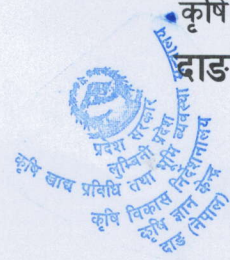 कृषि
दाङ
प्रदेश सरकार
लुम्बिनी प्रदेश
कृषि खाद्य प्रविधि तथा भूमि व्यवस्था मन्त्रालय
कृषि विकास निर्देशनालय
कृषि ज्ञान केन्द्र
दाङ (नेपाल)